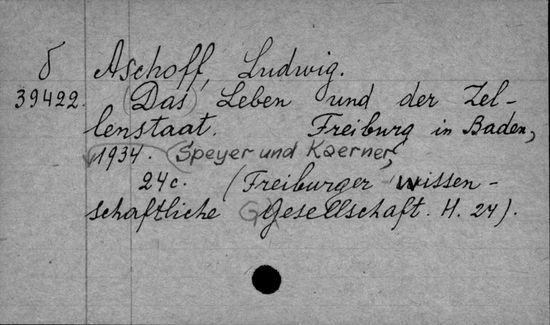 δ Aschoff, Ludwig.
39422. (Das) Leben und der Zel-
lenstaat. Freiburg in Baden,
1934. (Speyer und Kaerner,
24c. (Freiburger wissen-
schaftliche Gesellschaft. H. 24).